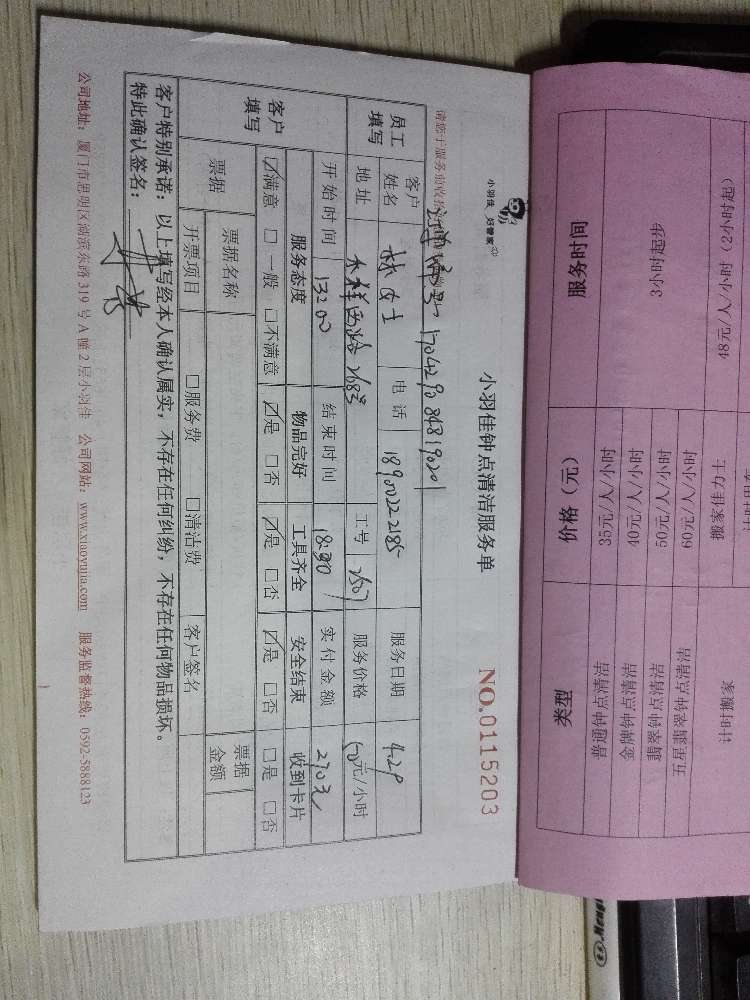 服务时间 价格（元） 类型
3小时起步 35元/人/小时 普通钟点清洁
40元/人/小时 金牌钟点清洁
50元/人/小时 翡翠钟点清洁
60元/人/小时 五居翡翠钟点清洁
48元/人/小时（2小时起） 搬家佳力士 计时搬家
小羽佳 好管家
小羽佳钟点清洁服务单
NO.0115203
请您于服务前收
员工填写 客户姓名 林女士 电话 18900222185 服务日期 4.29
地址 268号 工号 2507 服务价格 50元/小时
开始时间 13:00 结束时间 18:30 实付金额 270元
客户填写 服务态度 物品完好 工具齐全 安全结束 收到卡片
☑满意 □一般 □不满意 ☑是 □否 ☑是 □否 ☑是 □否 □是 □否
票据 票据名称 客户签名 票据金额
开票项目 □服务费 □清洁费
客户特别承诺：以上填写经本人确认属实，不存在任何纠纷，不存在任何物品损坏。
特此确认签名：
公司地址：厦门市思明区湖滨东路319号A幢2层小羽佳 公司网站：www.xiaoyujia.com 服务监督热线：0592-5888123